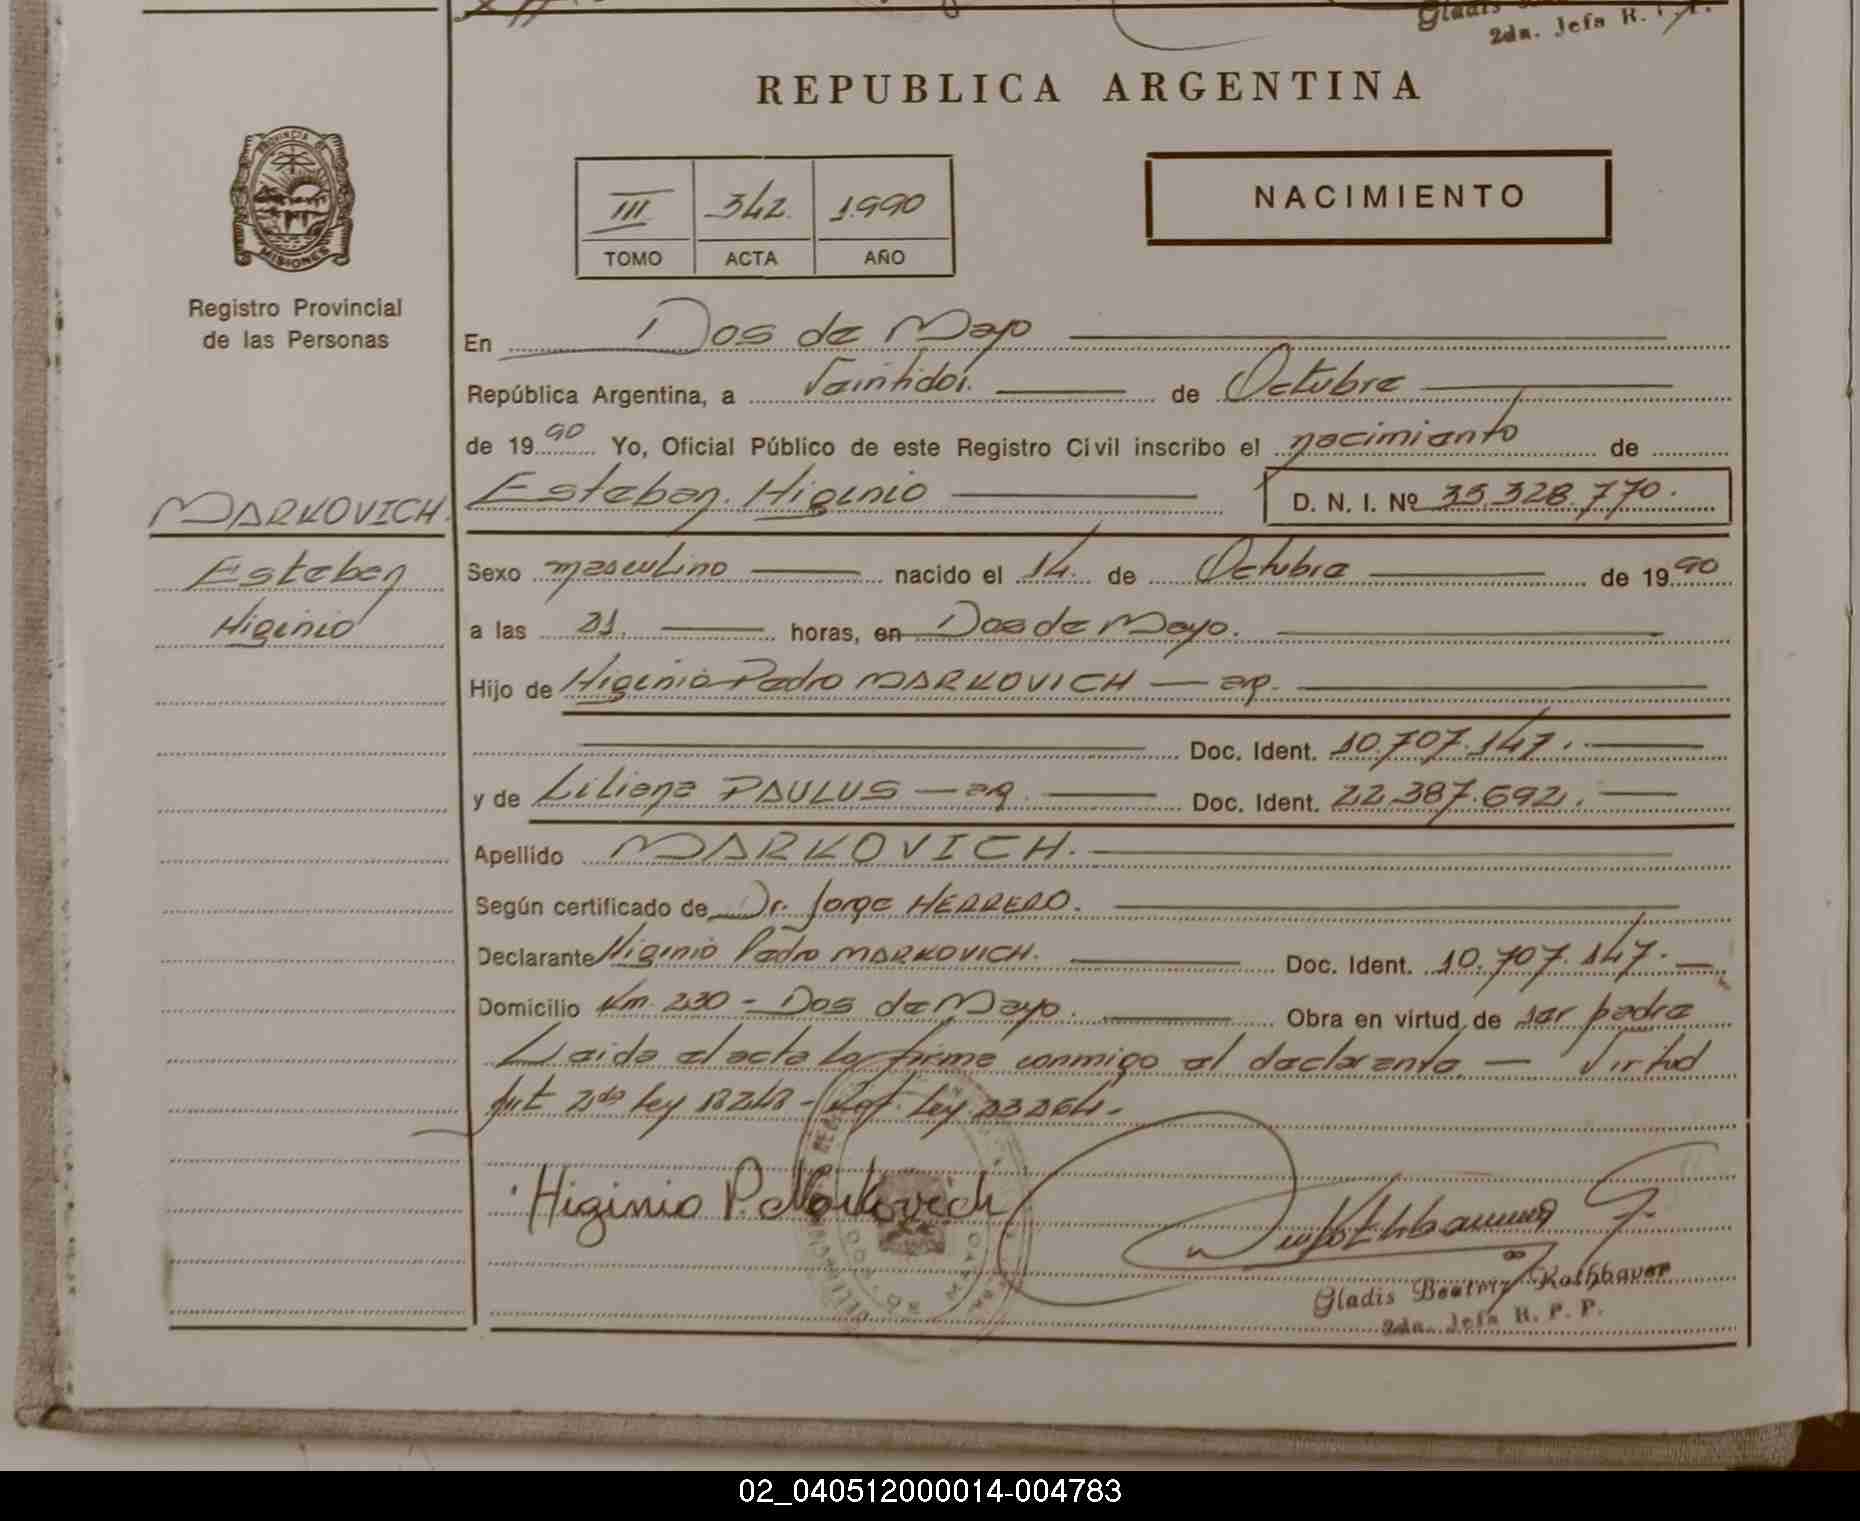 Gladis
2da. Jefa R. P. P.
REPUBLICA ARGENTINA
PROVINCIA DE
MISIONES
III 342. 1990
TOMO ACTA AÑO
NACIMIENTO
Registro Provincial
de las Personas
En Dos de Mayo
República Argentina, a Veintidos. de Octubre
de 1990 Yo, Oficial Público de este Registro Civil inscribo el nacimiento de
Esteban Higinio D. N. I. Nº 35.328.770.
MARKOVICH.
Esteban
Higinio
Sexo masculino nacido el 14. de Octubre de 1990
a las 21. horas, en Dos de Mayo.
Hijo de Higinio Pedro MARKOVICH — ar.
Doc. Ident. 10.707.147.
y de Liliana PAULUS — ar. Doc. Ident. 22.387.692.
Apellido MARKOVICH.
Según certificado de Dr. Jorge HERRERO.
Declarante Higinio Pedro MARKOVICH. Doc. Ident. 10.707.147.
Domicilio Km. 230 - Dos de Mayo. Obra en virtud de ser padre
Leida el acta la firma conmigo el declarante — Virtud
Art. 2do ley 18248 - Ref. ley 23264.
Higinio P. Markovich
Gladis Beatriz Kothbauer
2da. Jefa R. P. P.
02_040512000014-004783